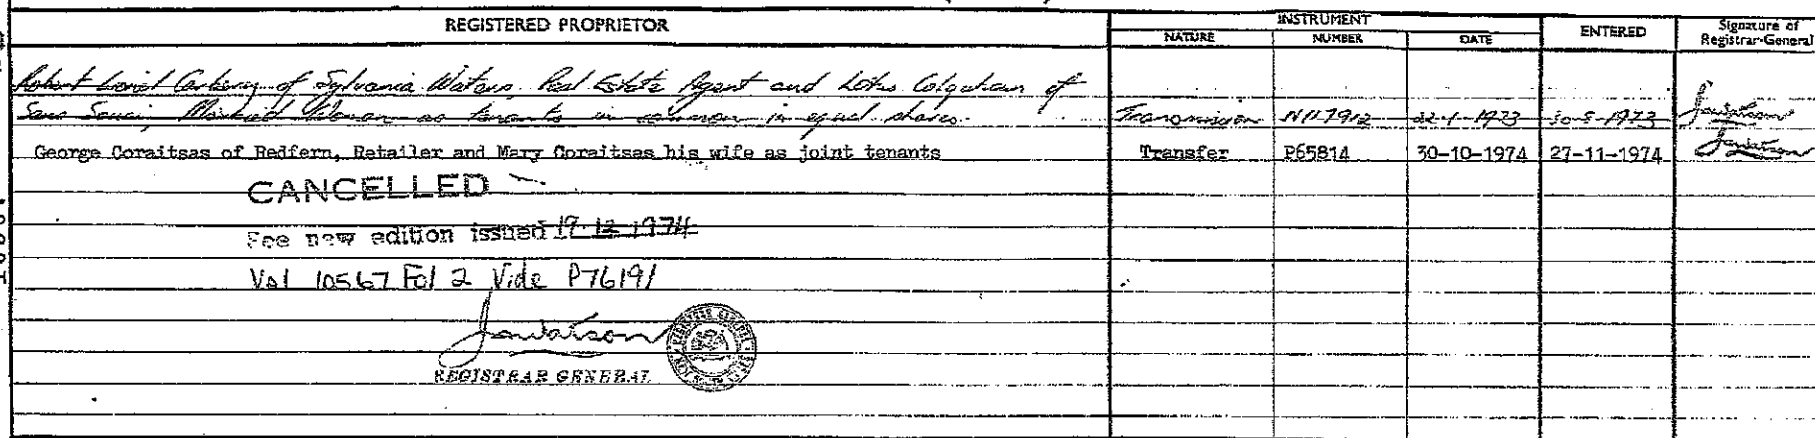 REGISTERED PROPRIETOR
INSTRUMENT
NATURE NUMBER DATE
ENTERED
Signature of
Registrar-General
Robert of Sylvania Waters Real Estate Agent and of
Sans Souci, Married Woman as tenants in common in equal shares.
Transmission N117912 22-1-1973 1973
George Coraitsas of Redfern, Retailer and Mary Coraitsas his wife as joint tenants Transfer P65814 30-10-1974 27-11-1974
CANCELLED
See new edition issued 19-12-1974
Vol 10567 Fol 2 Vide P76191
Jawatson
REGISTRAR GENERAL